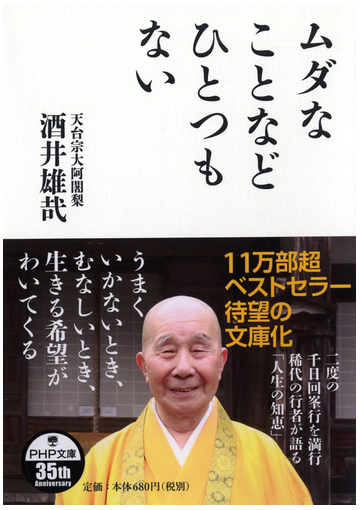 ムダな
ことなど
ひとつも
ない
天台宗大阿闍梨
酒井雄哉
11万部超
ベストセラー
待望の
文庫化
二度の
千日回峯行を満行
稀代の行者が語る
「人生の知恵」
うまく
いかないとき、
むなしいとき、
生きる希望が
わいてくる
PHP文庫
35th
Anniversary
定価:本体680円(税別)